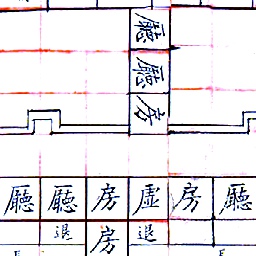 廳
廳
房
廳 廳 房 虛 房 廳
退 房 退